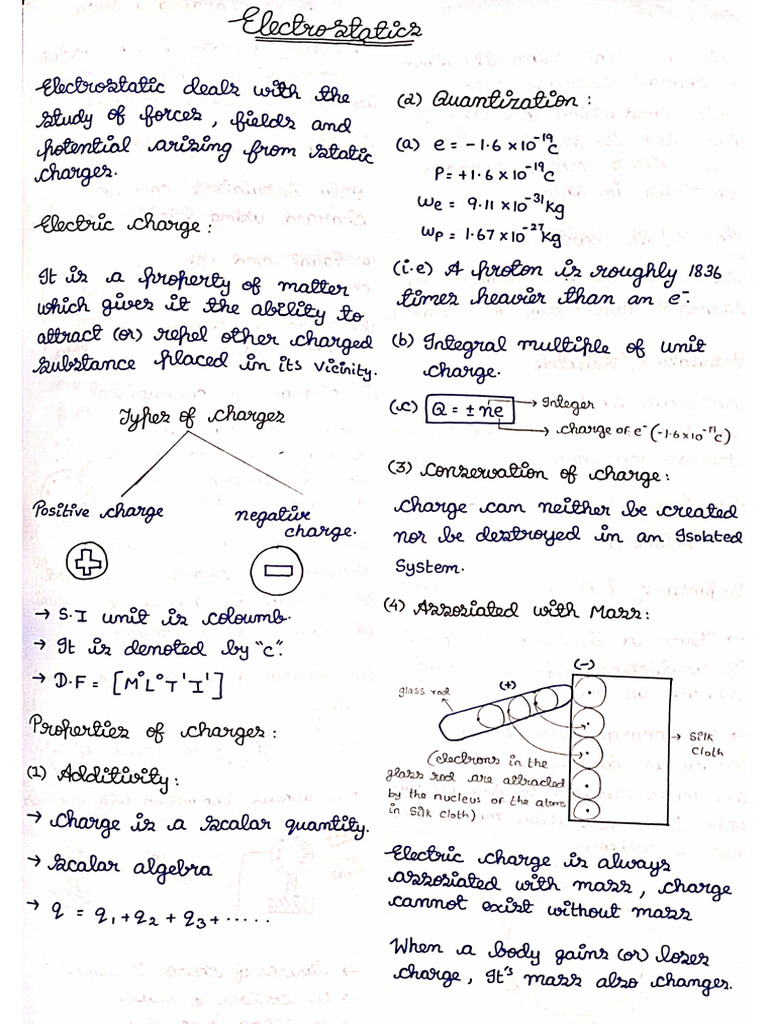 Electrostatics
Electrostatic deals with the
study of forces, fields and
potential arising from static
charges.
Electric charge:
It is a property of matter
which gives it the ability to
attract (or) repel other charged
substance placed in its vicinity.
Types of charges
Positive charge
negative
charge.
→ S.I unit is coloumb.
→ It is denoted by "c".
→ D.F = [M⁰L⁰T¹I¹]
Properties of charges:
(1) Additivity:
→ charge is a scalar quantity.
→ scalar algebra
→ q = q₁+q₂+q₃+.....
(2) Quantization:
(a) e = -1.6 × 10⁻¹⁹c
P = +1.6 × 10⁻¹⁹c
we = 9.11 × 10⁻³¹kg
wp = 1.67 × 10⁻²⁷kg
(i.e) A proton is roughly 1836
times heavier than an e⁻.
(b) Integral multiple of unit
charge.
(c) Q = ± ne → Integer
→ charge of e⁻ (-1.6×10⁻¹⁹c)
(3) conservation of charge:
charge can neither be created
nor be destroyed in an Isolated
System.
(4) Assosiated with Mass:
(-)
glass rod
(+)
→ Silk
cloth
(electrons in the
glass rod are attracted
by the nucleus of the atoms
in Silk cloth)
Electric charge is always
assosiated with mass, charge
cannot exist without mass
When a body gains (or) loses
charge, It's mass also changes.